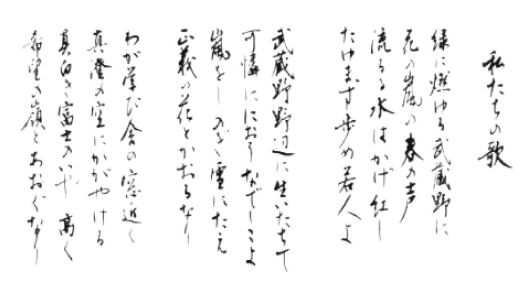 私たちの歌
緑に燃ゆる武蔵野に
花の嵐の春の声
流るる水はかげ紅し
たゆまず歩め若人よ
武蔵野野辺に生いたちて
可憐ににおうなでしこよ
嵐をしのぎ雪にたえ
正義の花とかおるなり
わが学び舎の窓近く
真澄の空にかがやける
真白き富士のいや高く
希望の嶺とあおぐなり